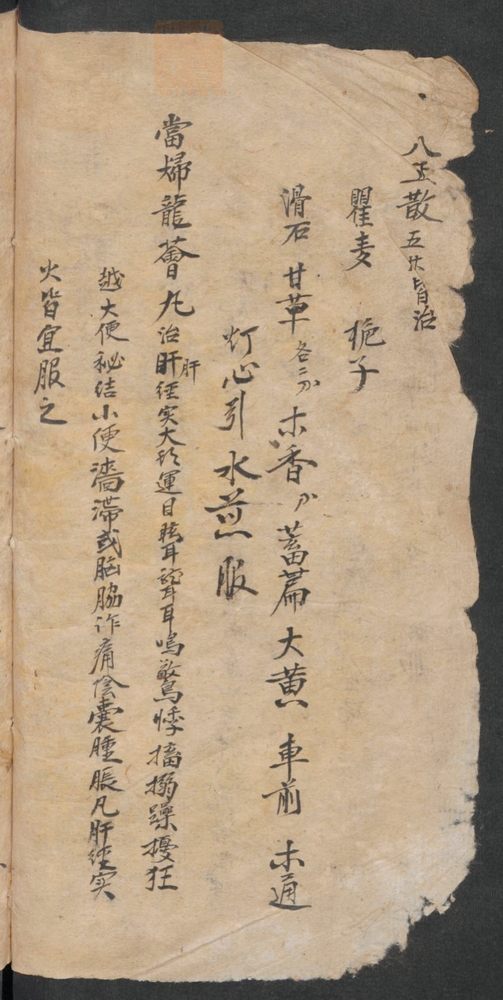 八正散 五淋皆治
瞿麦 梔子
滑石 甘草 各二分 木香 分 蓄萹 大黄 車前 木通
灯心引水煎服
當歸龍薈丸 治肝經实大 運目眩耳聾耳鳴驚悸搐搦躁擾狂
肝
越大便秘結小便濇滯或胸脇作痛陰囊腫脹凡肝經实
火皆宜服之